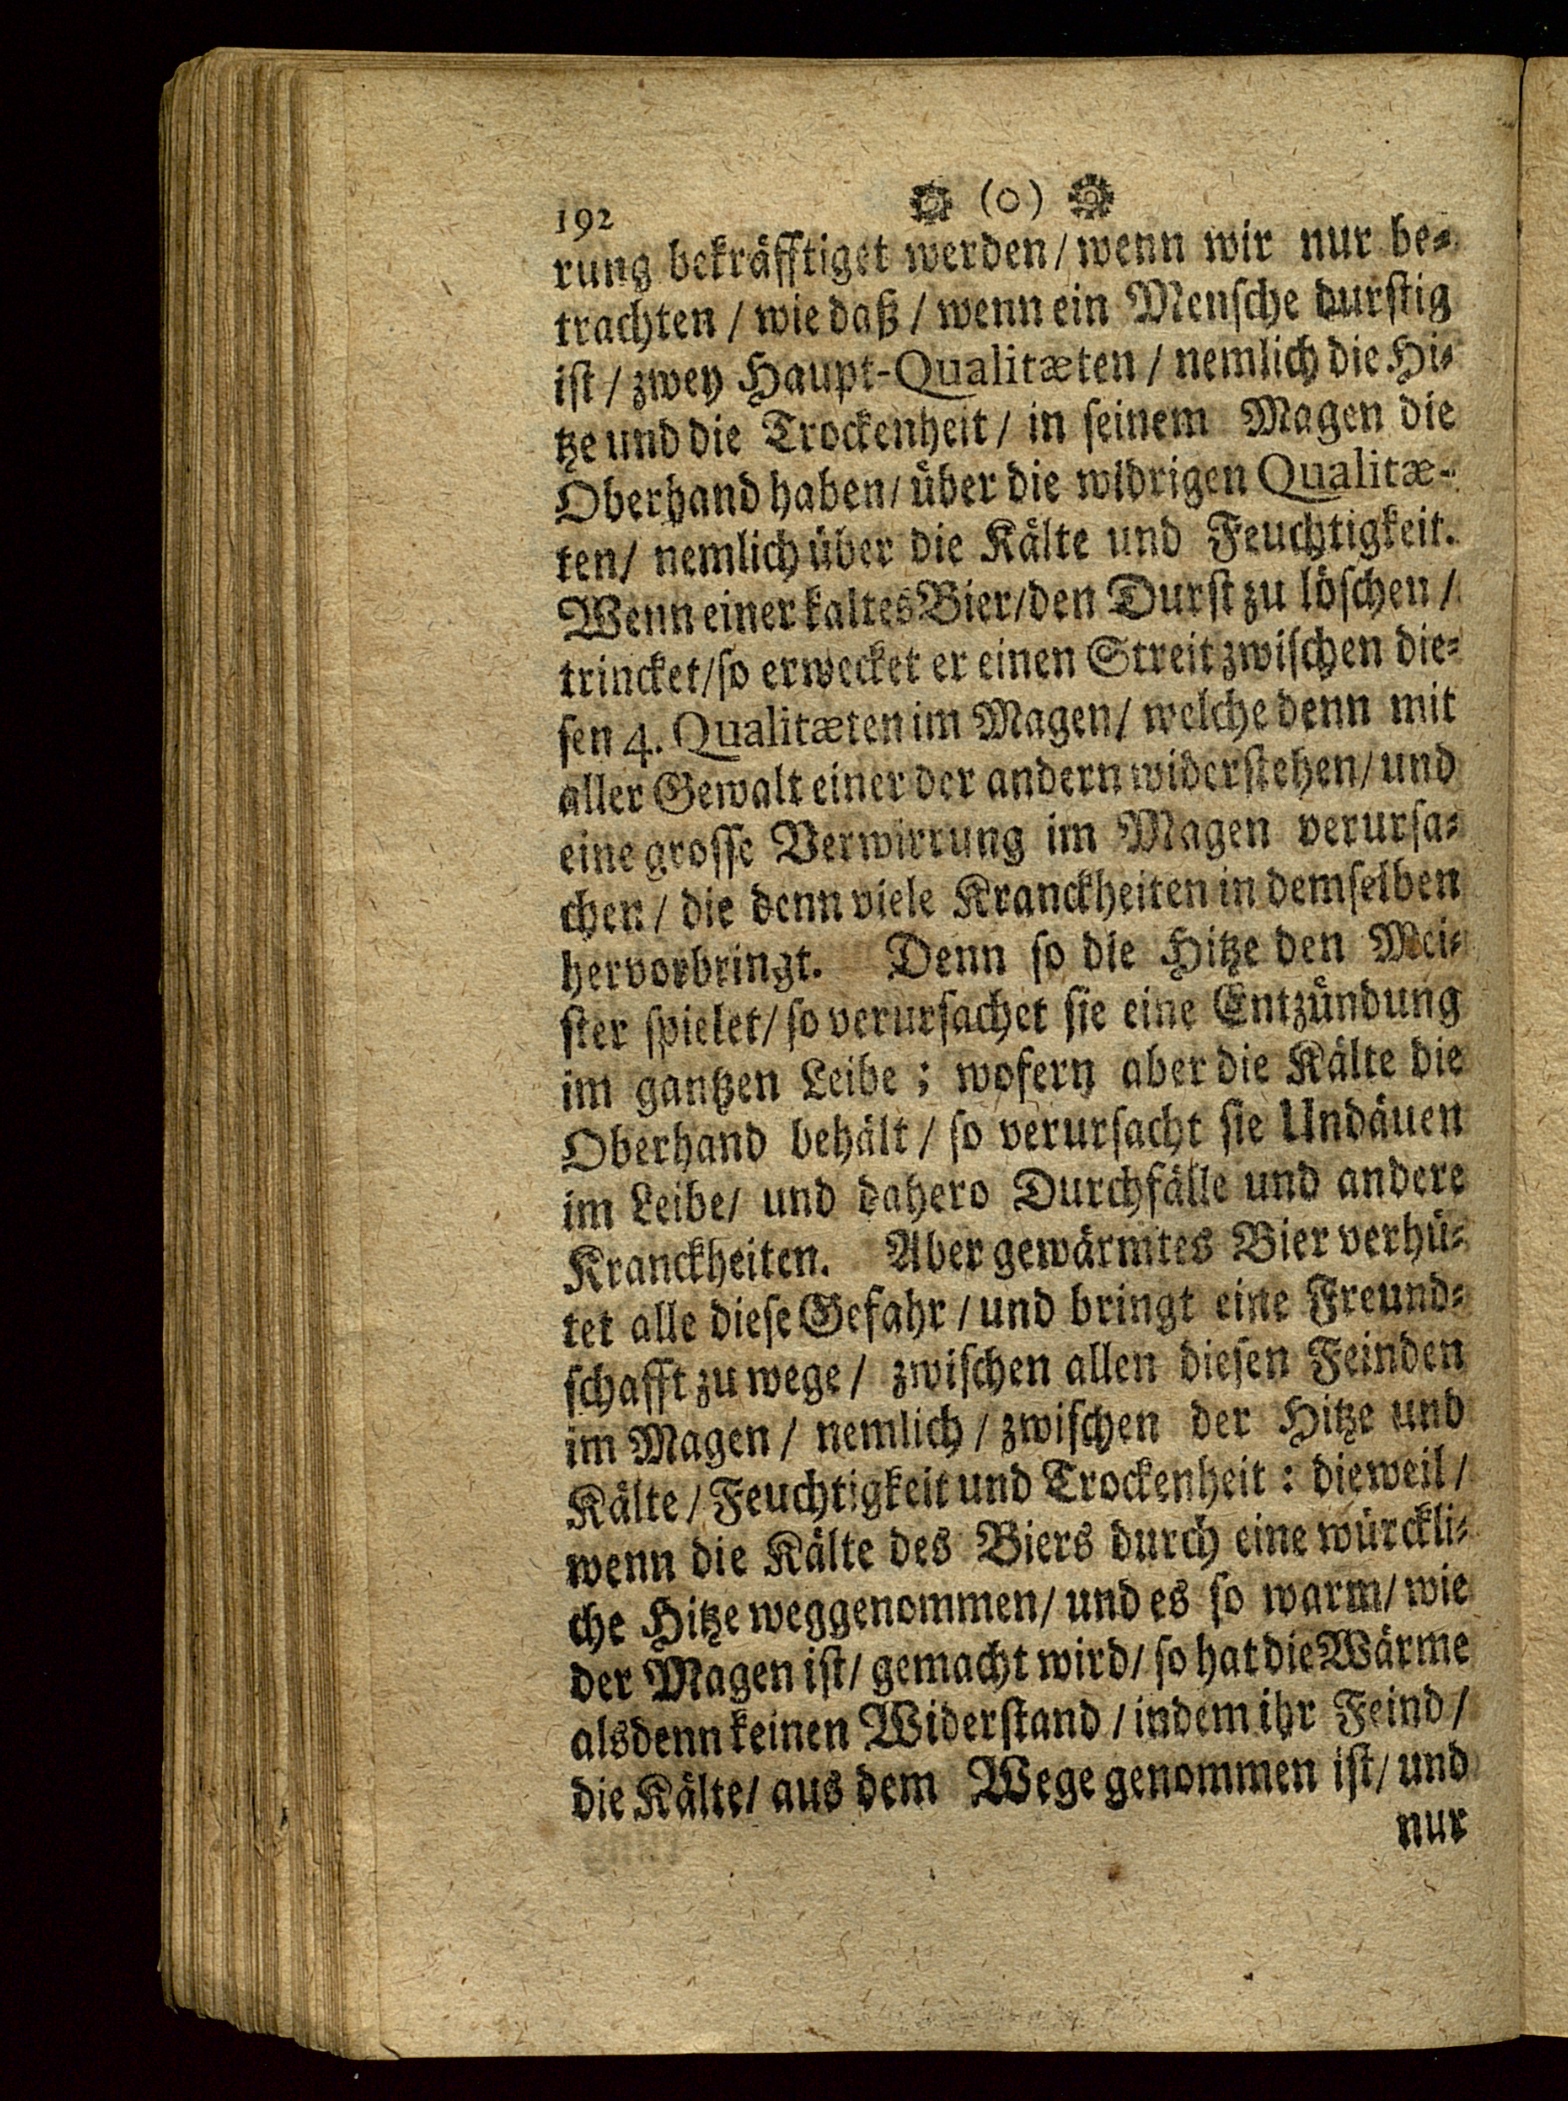 192 (o)
rung bekräfftiget werden / wenn wir nur be-
trachten / wie daß / wenn ein Mensche durstig
ist / zwey Haupt-Qualitæten / nemlich die Hi-
tze und die Trockenheit / in seinem Magen die
Oberhand haben / über die widrigen Qualitæ-
ten / nemlich über die Kälte und Feuchtigkeit.
Wenn einer kaltes Bier / den Durst zu löschen /
trincket / so erwecket er einen Streit zwischen die-
sen 4. Qualitæten im Magen / welche denn mit
aller Gewalt einer der andern widerstehen / und
eine grosse Verwirrung im Magen verursa-
chen / die denn viele Kranckheiten in demselben
hervorbringt. Denn so die Hitze den Mei-
ster spielet / so verursachet sie eine Entzündung
im gantzen Leibe ; wofern aber die Kälte die
Oberhand behält / so verursacht sie Undäuen
im Leibe / und dahero Durchfälle und andere
Kranckheiten. Aber gewärmtes Bier verhü-
tet alle diese Gefahr / und bringt eine Freund-
schafft zu wege / zwischen allen diesen Feinden
im Magen / nemlich / zwischen der Hitze und
Kälte / Feuchtigkeit und Trockenheit : dieweil /
wenn die Kälte des Biers durch eine würckli-
che Hitze weggenommen / und es so warm / wie
der Magen ist / gemacht wird / so hat die Wärme
alsdenn keinen Widerstand / indem ihr Feind /
die Kälte / aus dem Wege genommen ist / und
nur